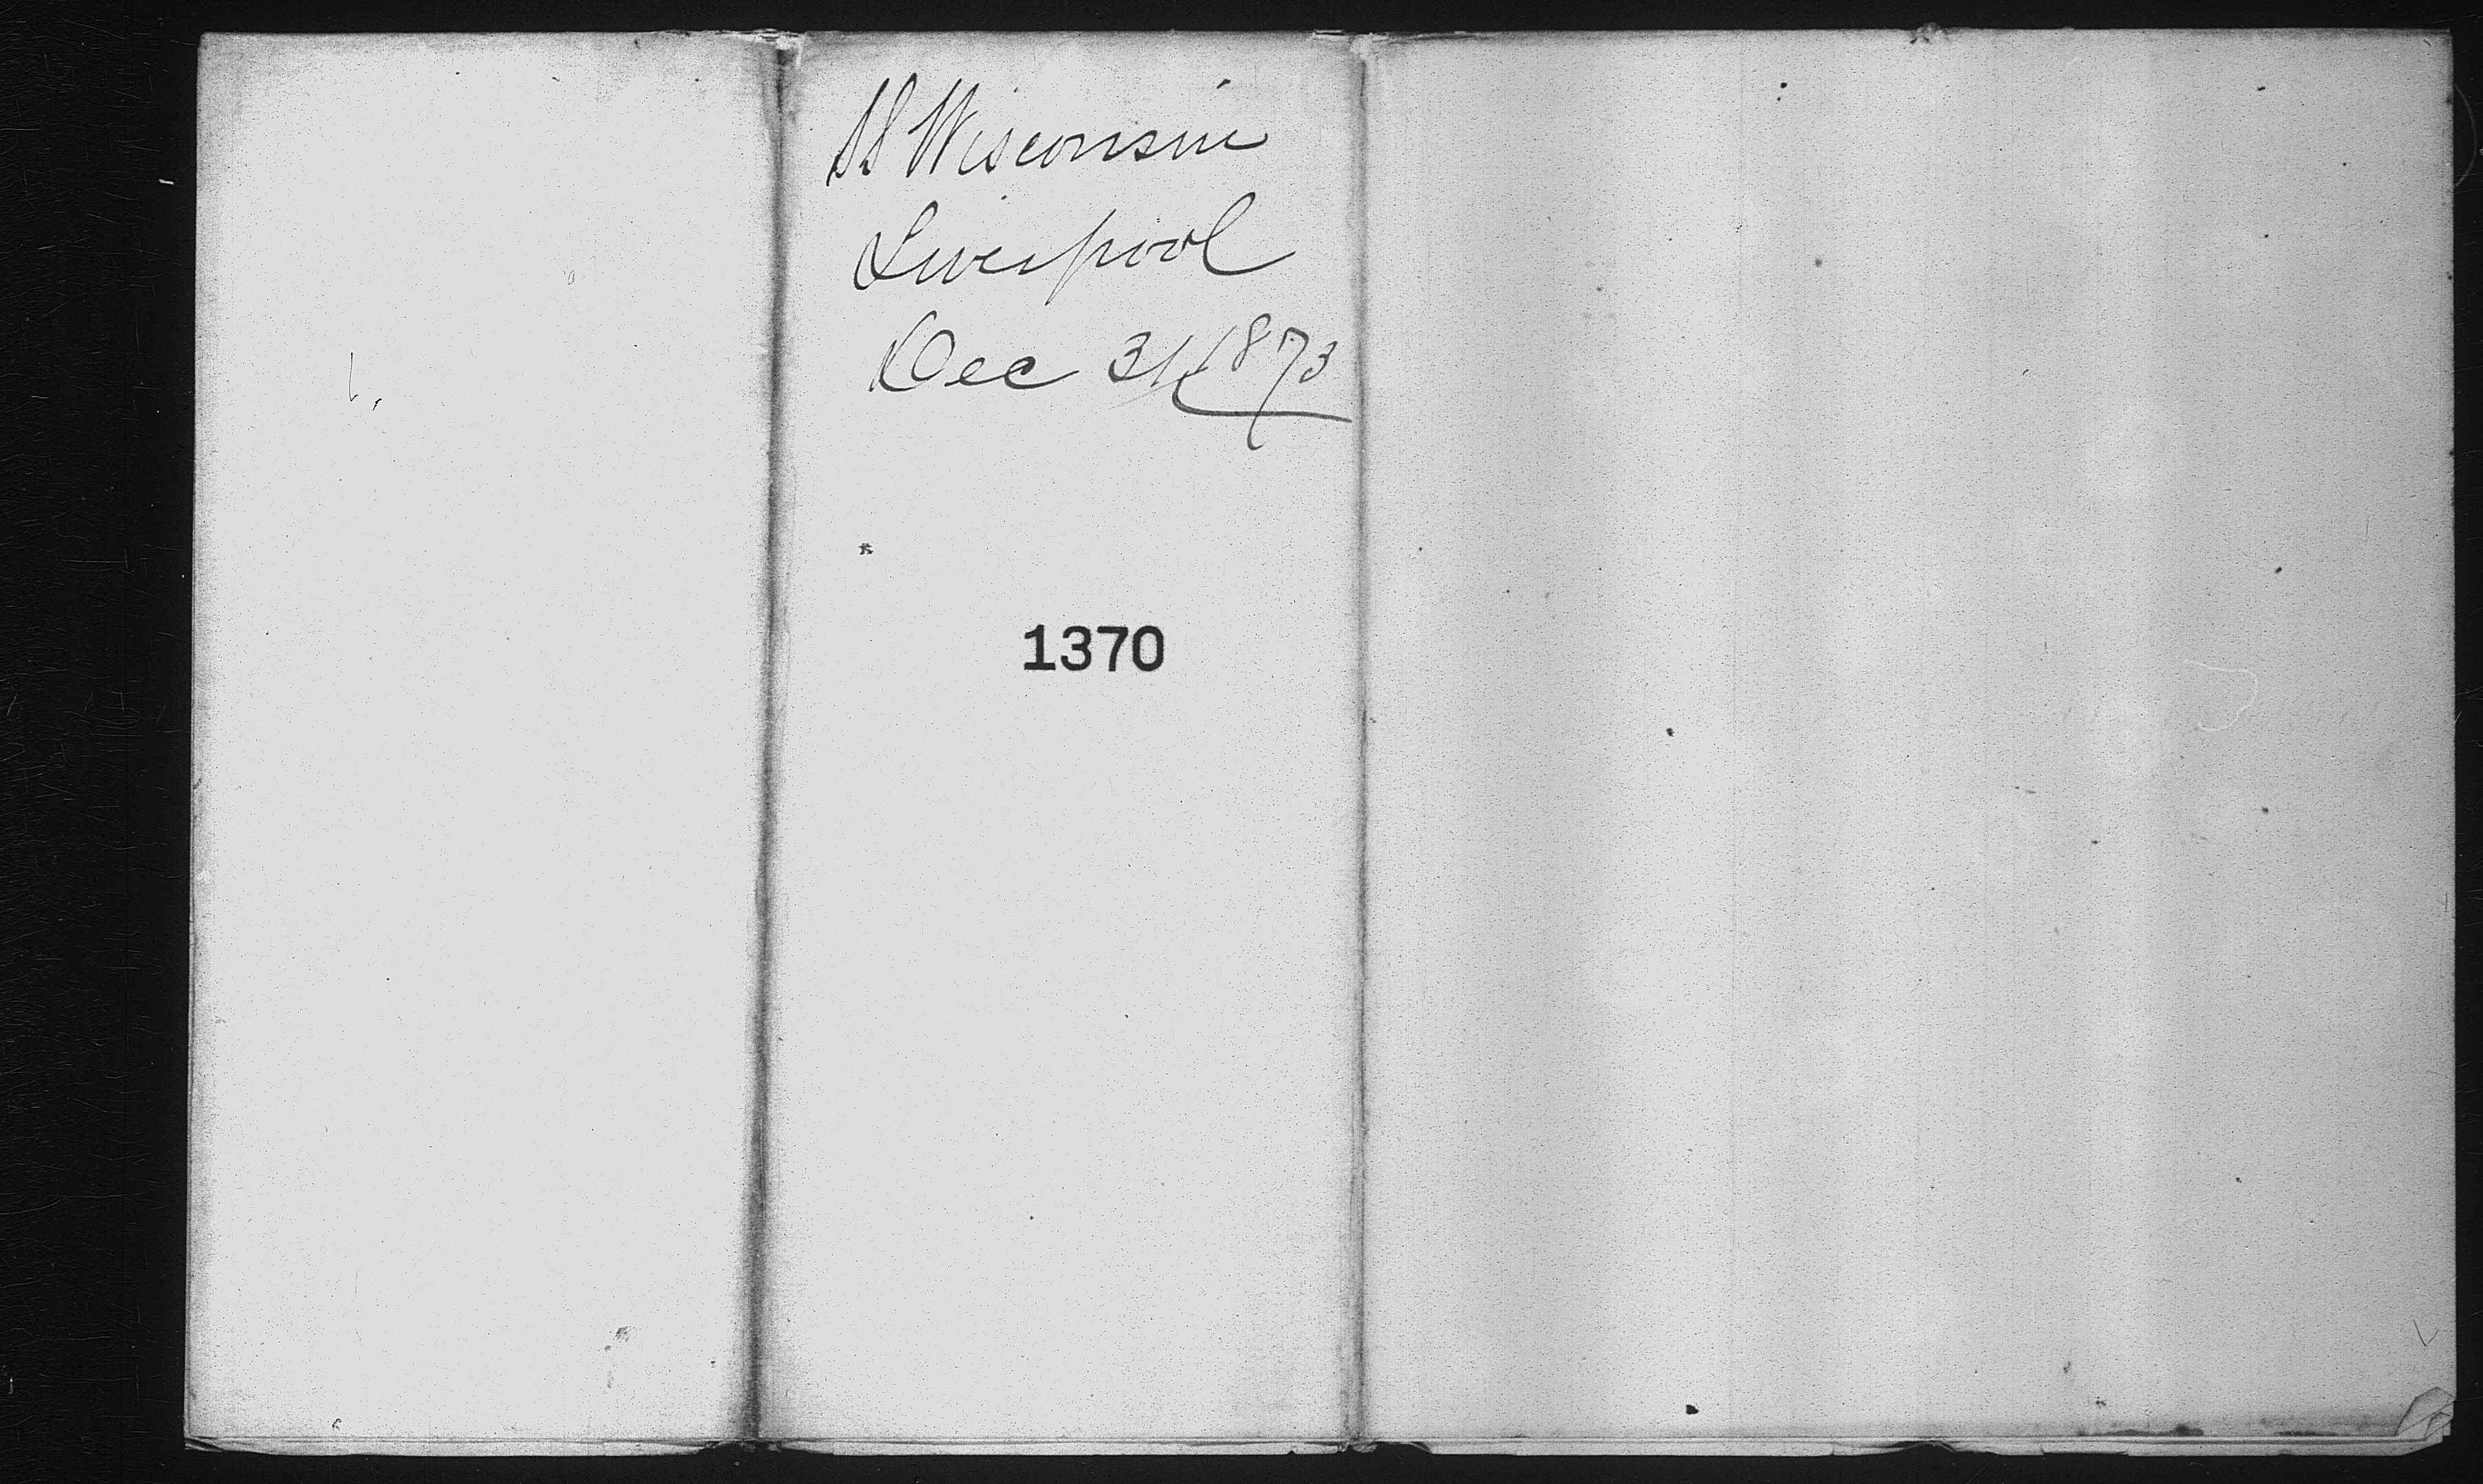 SS Wisconsin
Liverpool
Dec 31/1873
1370